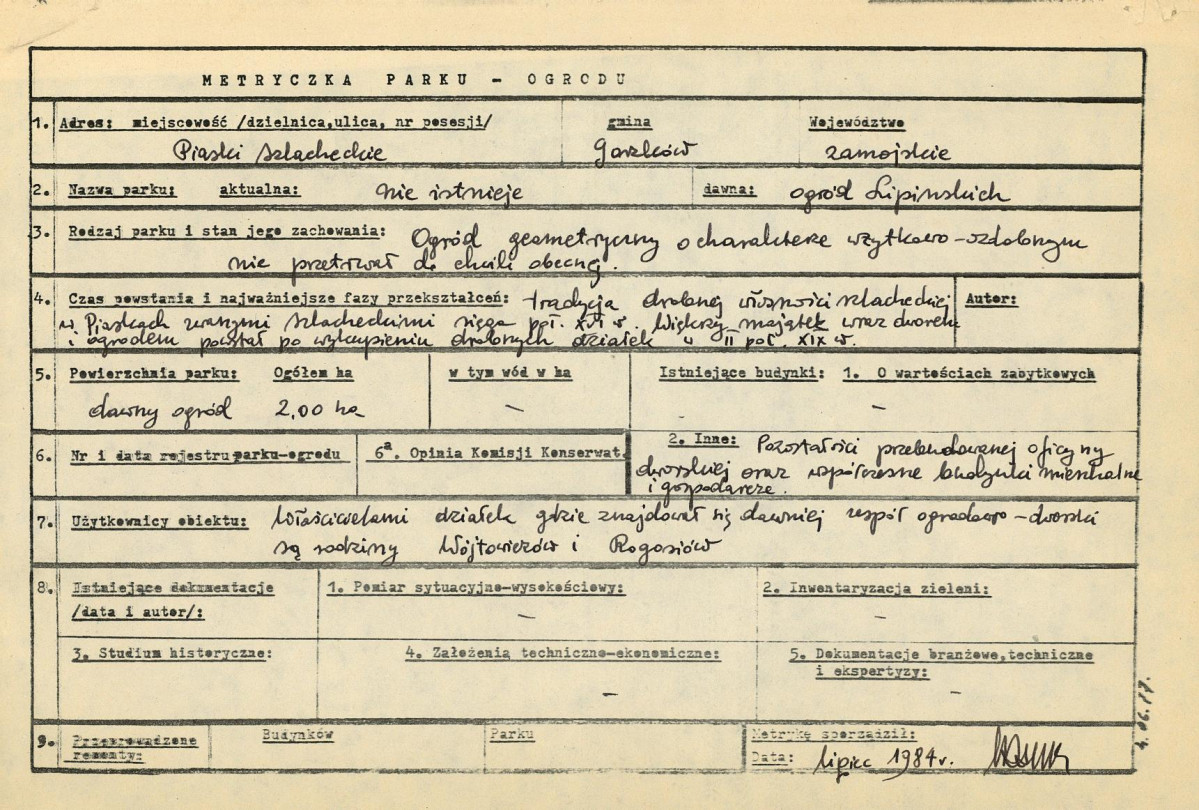 METRYCZKA PARKU - OGRODU
1. Adres: miejscowość /dzielnica,ulica, nr posesji/ gmina Województwo
Piaski szlacheckie Gorzków zamojskie
2. Nazwa parku: aktualna: nie istnieje dawna: ogród Lipińskich
3. Rodzaj parku i stan jego zachowania: Ogród geometryczny o charakterze użytkowo-ozdobnym
nie przetrwał do chwili obecnej.
4. Czas powstania i najważniejsze fazy przekształceń: tradycja drobnej własności szlacheckiej Autor:
w Piaskach zwanymi szlacheckimi sięga poł. XVI w. Większy majątek wraz dworem
i ogrodem powstał po wykupieniu drobnych działek w II poł. XIX w.
5. Powierzchnia parku: Ogółem ha w tym wód w ha Istniejące budynki: 1. O wartościach zabytkowych
dawny ogród 2,00 ha - -
6. Nr i data rejestru parku-ogrodu 6a. Opinia Komisji Konserwat.
2. Inne: Pozostałości przebudowanej oficyny
dworskiej oraz współczesne budynki mieszkalne
i gospodarcze.
7. Użytkownicy obiektu: Właścicielami działek gdzie znajdował się dawniej zespół ogrodowo-dworski
są rodziny Wójtowiczów i Rogosiów
8. Istniejące dokumentacje 1. Pomiar sytuacyjno-wysokościowy: 2. Inwentaryzacja zieleni:
/data i autor/: - -
3. Studium historyczne: 4. Założenia techniczno-ekonomiczne: 5. Dokumentacje branżowe,techniczne
i ekspertyzy:
- -
9. Przeprowadzone Budynków Parku Metrykę sporządził:
remonty: Data: lipiec 1984r.